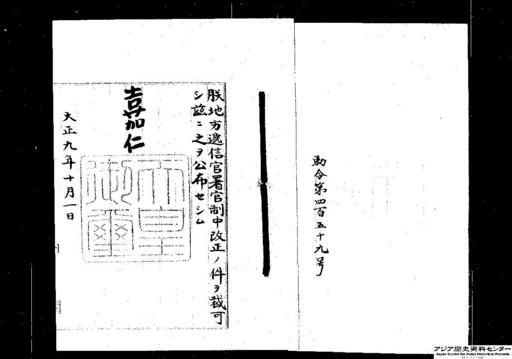 勅令第四百五十九号
朕地方逓信官署官制中改正ノ件ヲ裁可
シ茲ニ之ヲ公布セシム
嘉仁
天皇
御璽
大正九年十月一日
アジア歴史資料センター
Japan Center for Asian Historical Records